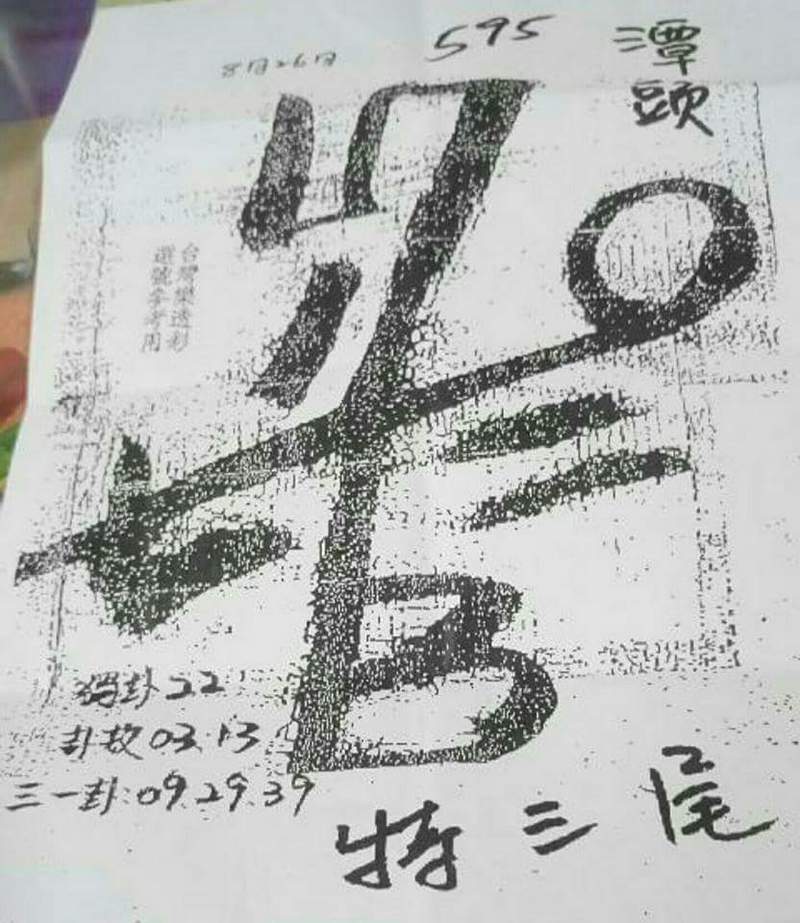 8月26日
595
潭頭
台灣樂透彩
選號參考用
獨卦22
卦救03.13
三一卦:09.29.39
特三尾